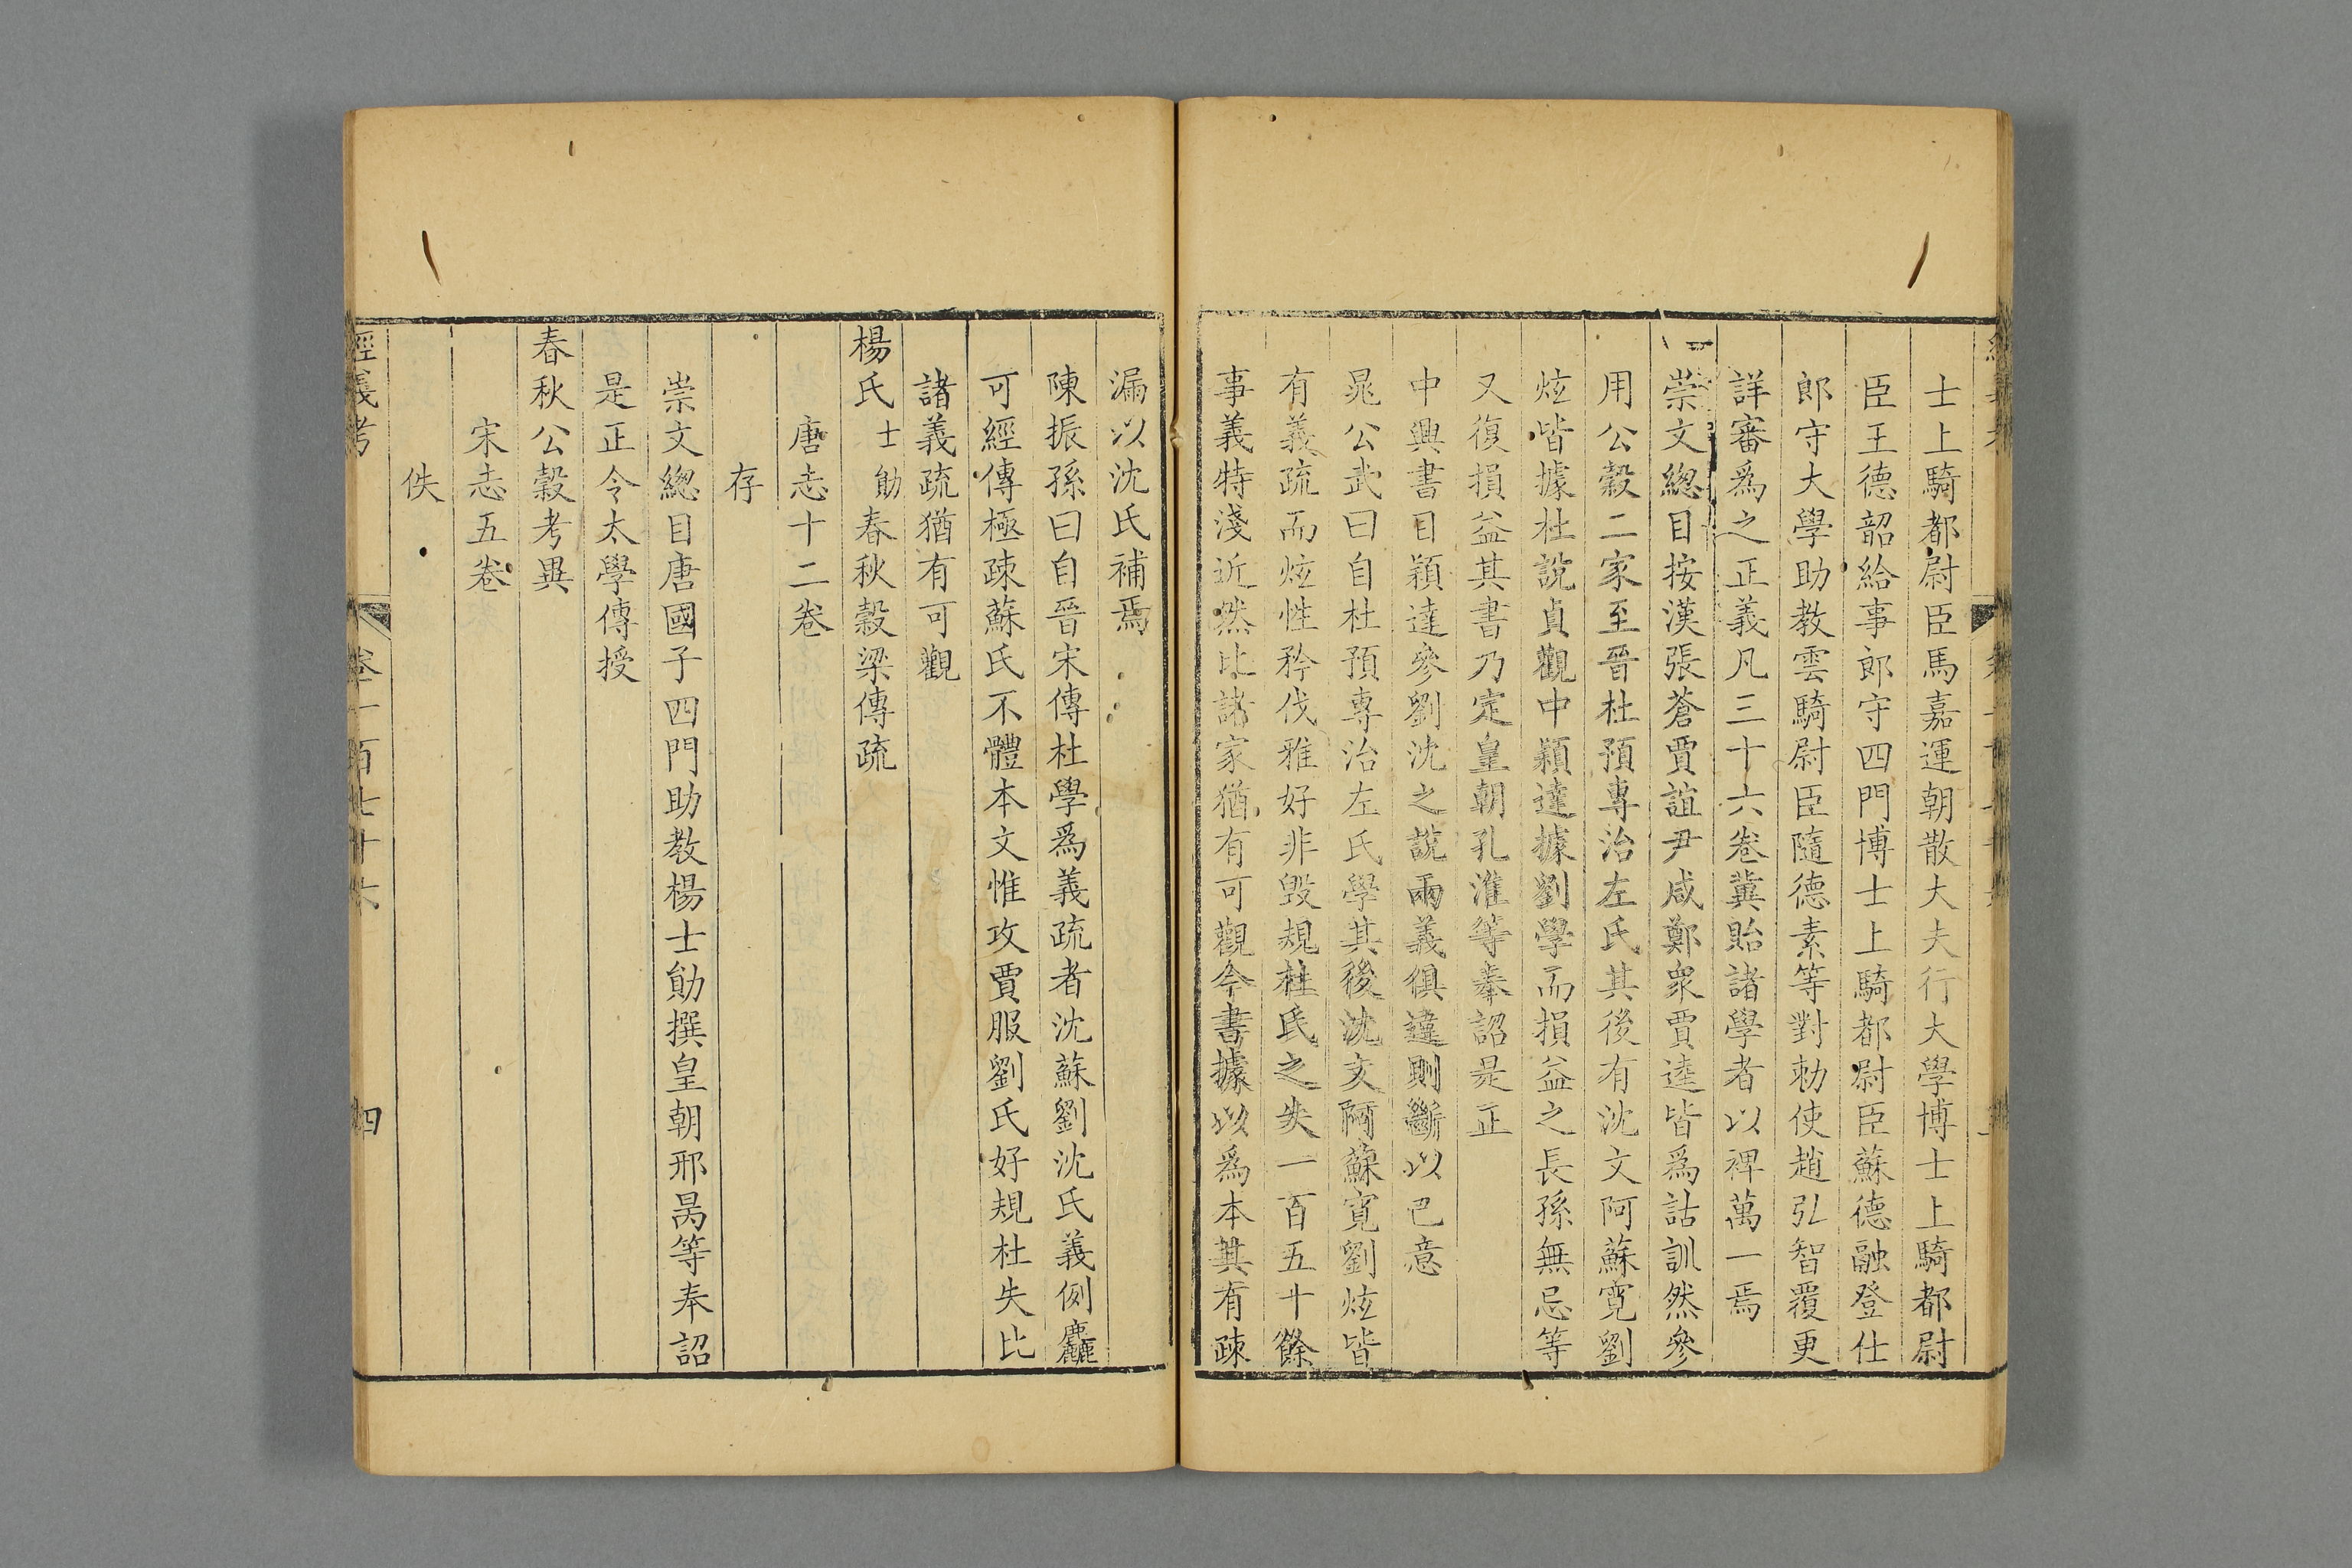 士上騎都尉臣馬嘉運朝散大夫行大學博士上騎都尉
臣王德韶給事郎守四門博士上騎都尉臣蘇德融登仕
郎守大學助教雲騎尉臣隨德素等對勑使趙弘智覆更
詳審爲之正義凡三十六卷冀貽諸學者以裨萬一焉
崇文總目按漢張蒼賈誼尹咸鄭衆賈逵皆爲詁訓然參
用公穀二家至晉杜預專治左氏其後有沈文阿蘇寬劉
炫皆據杜說貞觀中穎達據劉學而損益之長孫無忌等
又復損益其書乃定皇朝孔淮等奉詔是正
中興書目穎達參劉沈之說兩義俱違則斷以已意
晁公武曰自杜預專治左氏學其後沈文阿蘇寬劉炫皆
有義疏而炫性矜伐雅好非毀規杜氏之失一百五十餘
事義特淺近然比諸家猶有可觀今書據以爲本其有疎
漏以沈氏補焉
陳振孫曰自晉宋傳杜學爲義疏者沈蘇劉沈氏義例麤
可經傳極疎蘇氏不體本文惟攻賈服劉氏好規杜失比
諸義疏猶有可觀
楊氏士勛春秋穀梁傳疏
唐志十二卷
存
崇文總目唐國子四門助教楊士勛撰皇朝邢昺等奉詔
是正令太學傳授
春秋公穀考異
宋志五卷
佚
經義考 卷一百七十六 四